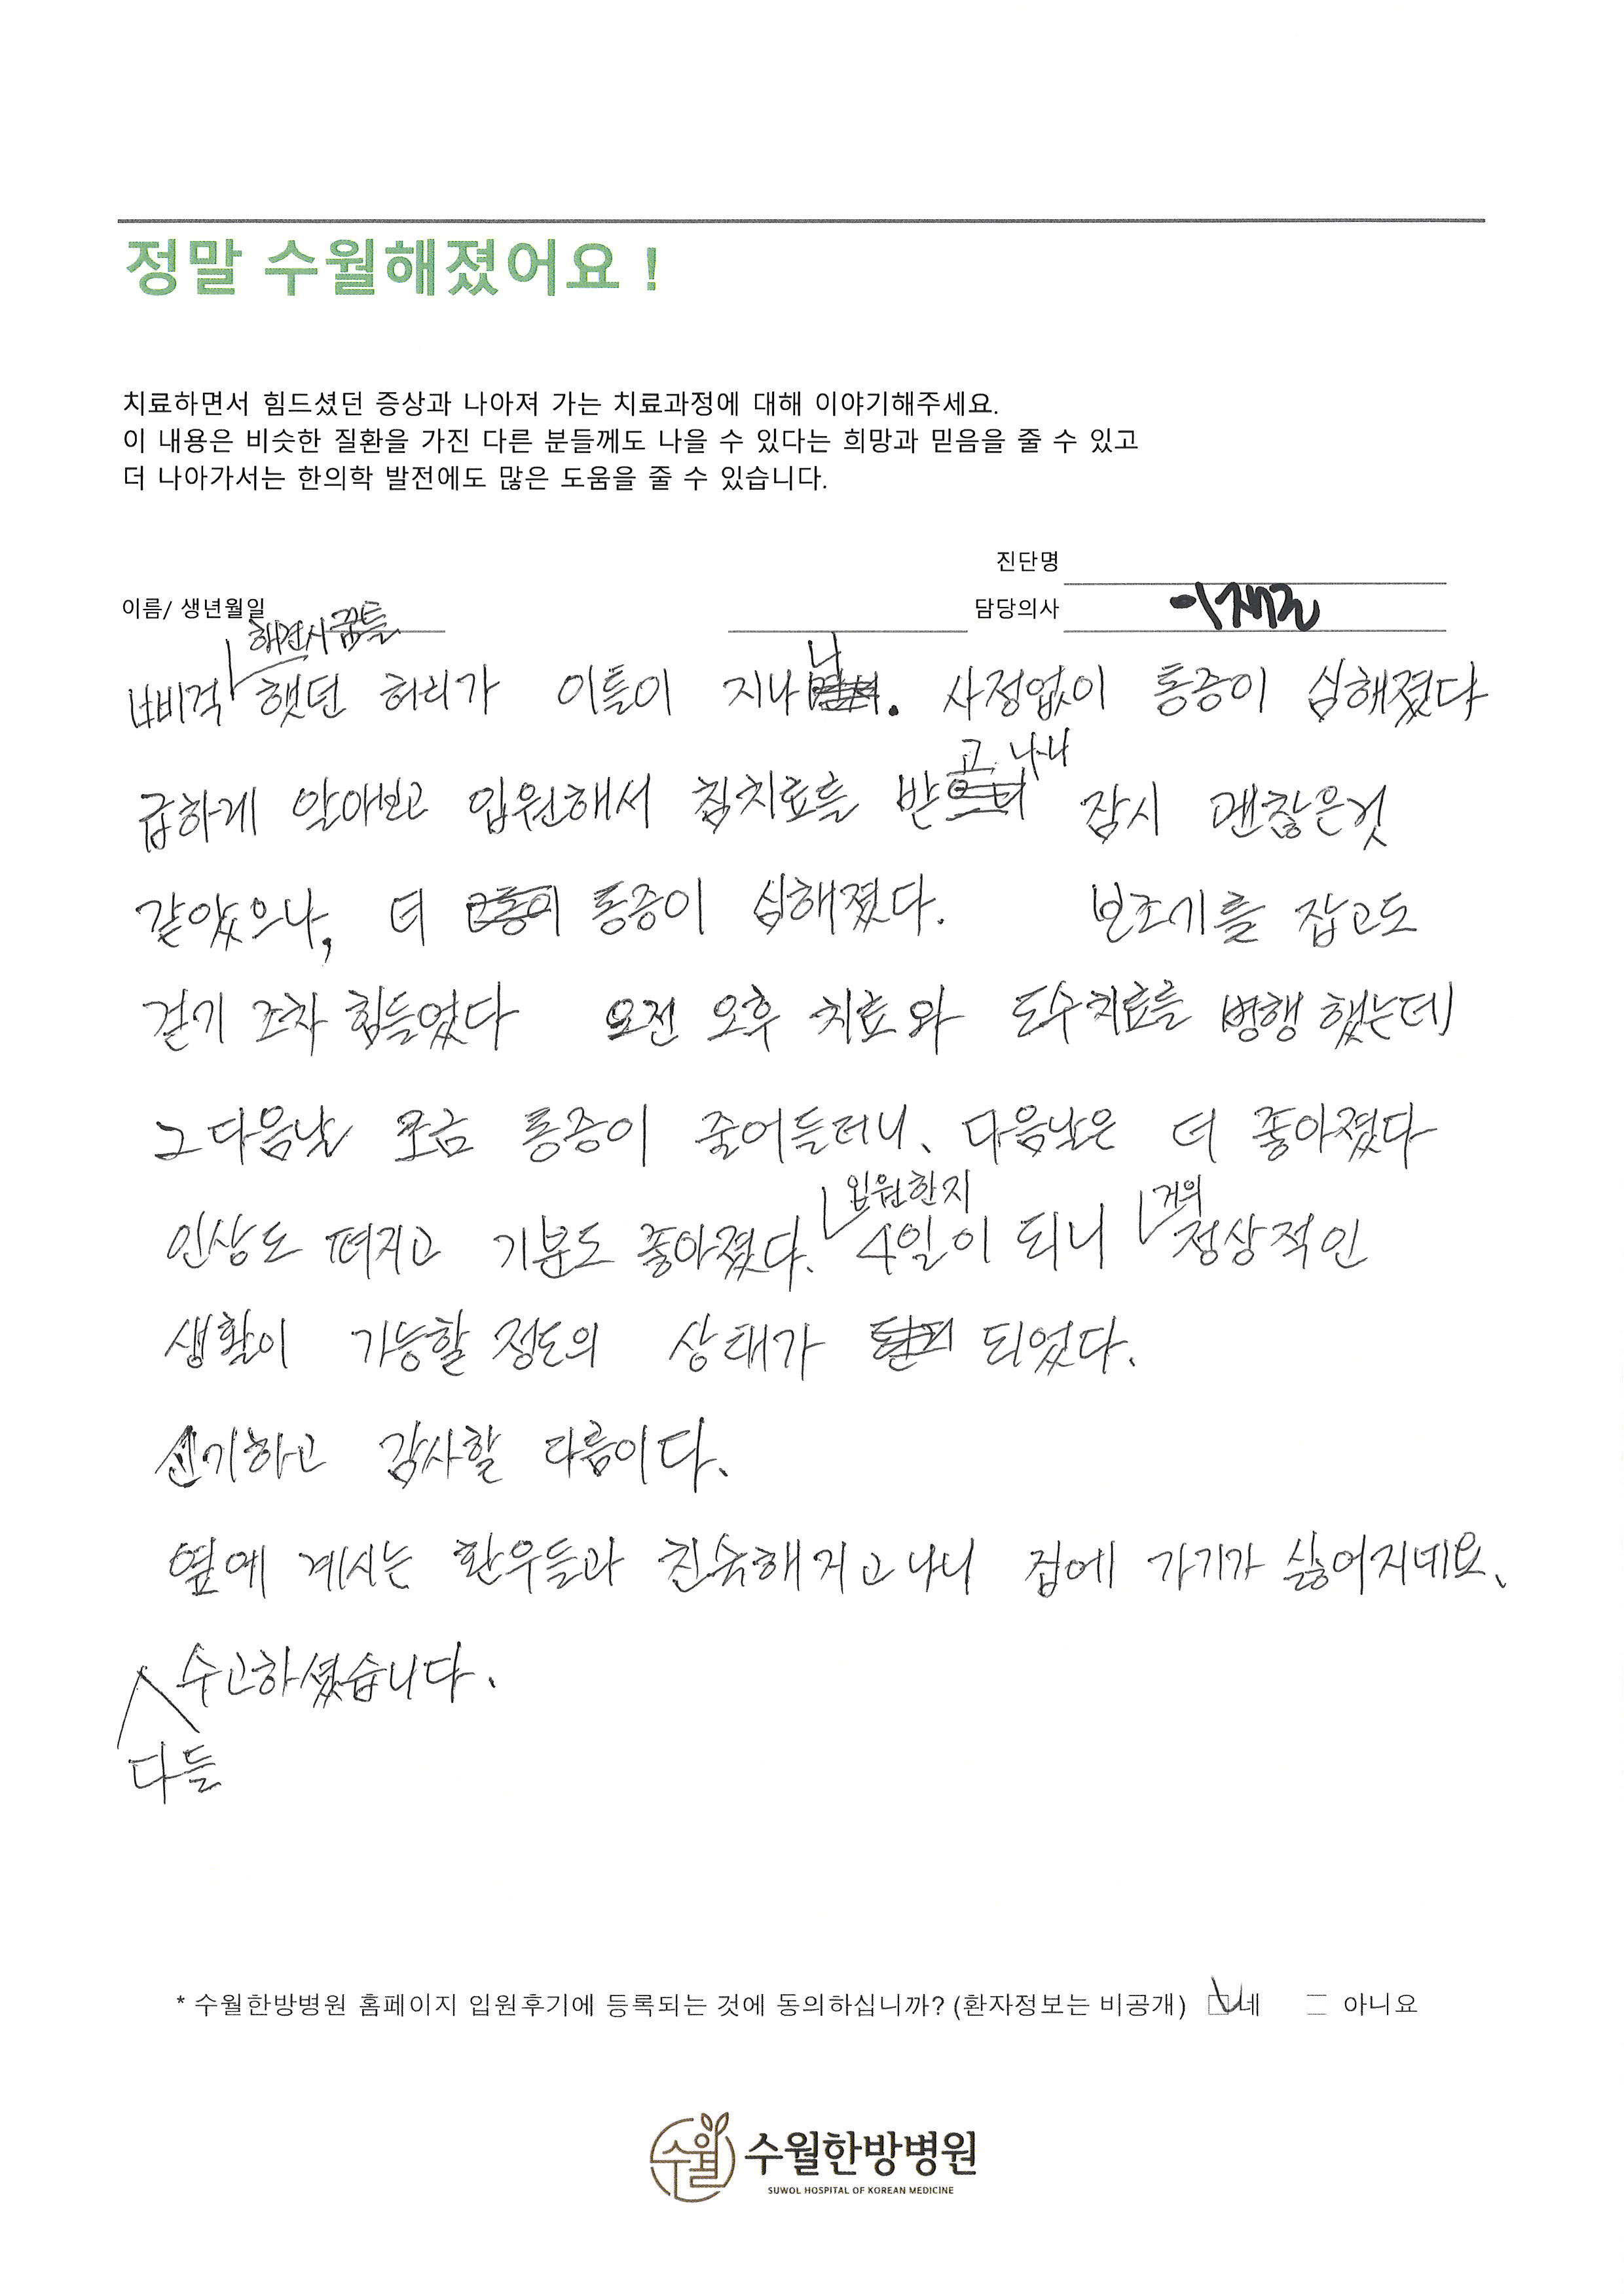 정말 수월해졌어요 !
치료하면서 힘드셨던 증상과 나아져 가는 치료과정에 대해 이야기해주세요.
이 내용은 비슷한 질환을 가진 다른 분들께도 나을 수 있다는 희망과 믿음을 줄 수 있고
더 나아가서는 한의학 발전에도 많은 도움을 줄 수 있습니다.
진단명
이름/ 생년월일
담당의사
삐걱 했던 허리가 이틀이 지나니. 사정없이 통증이 심해졌다
급하게 알아보고 입원해서 침치료를 받고 나니 잠시 괜찮은것
같았으나, 더 통증이 심해졌다. 보조기를 잡고도
걷기 조차 힘들었다 오전 오후 치료와 도수치료를 병행 했는데
그다음날 조금 통증이 줄어들더니. 다음날은 더 좋아졌다
인상도 펴지고 기분도 좋아졌다. 입원한지 4일이 되니 거의 정상적인
생활이 가능할 정도의 상태가 되었다.
신기하고 감사할 다름이다.
옆에 계시는 환우들과 친숙해지고나니 집에 가기가 싫어지네요.
다들 수고하셨습니다.
* 수월한방병원 홈페이지 입원후기에 등록되는 것에 동의하십니까? (환자정보는 비공개) 네 아니요
수월 수월한방병원
SUWOL HOSPITAL OF KOREAN MEDICINE